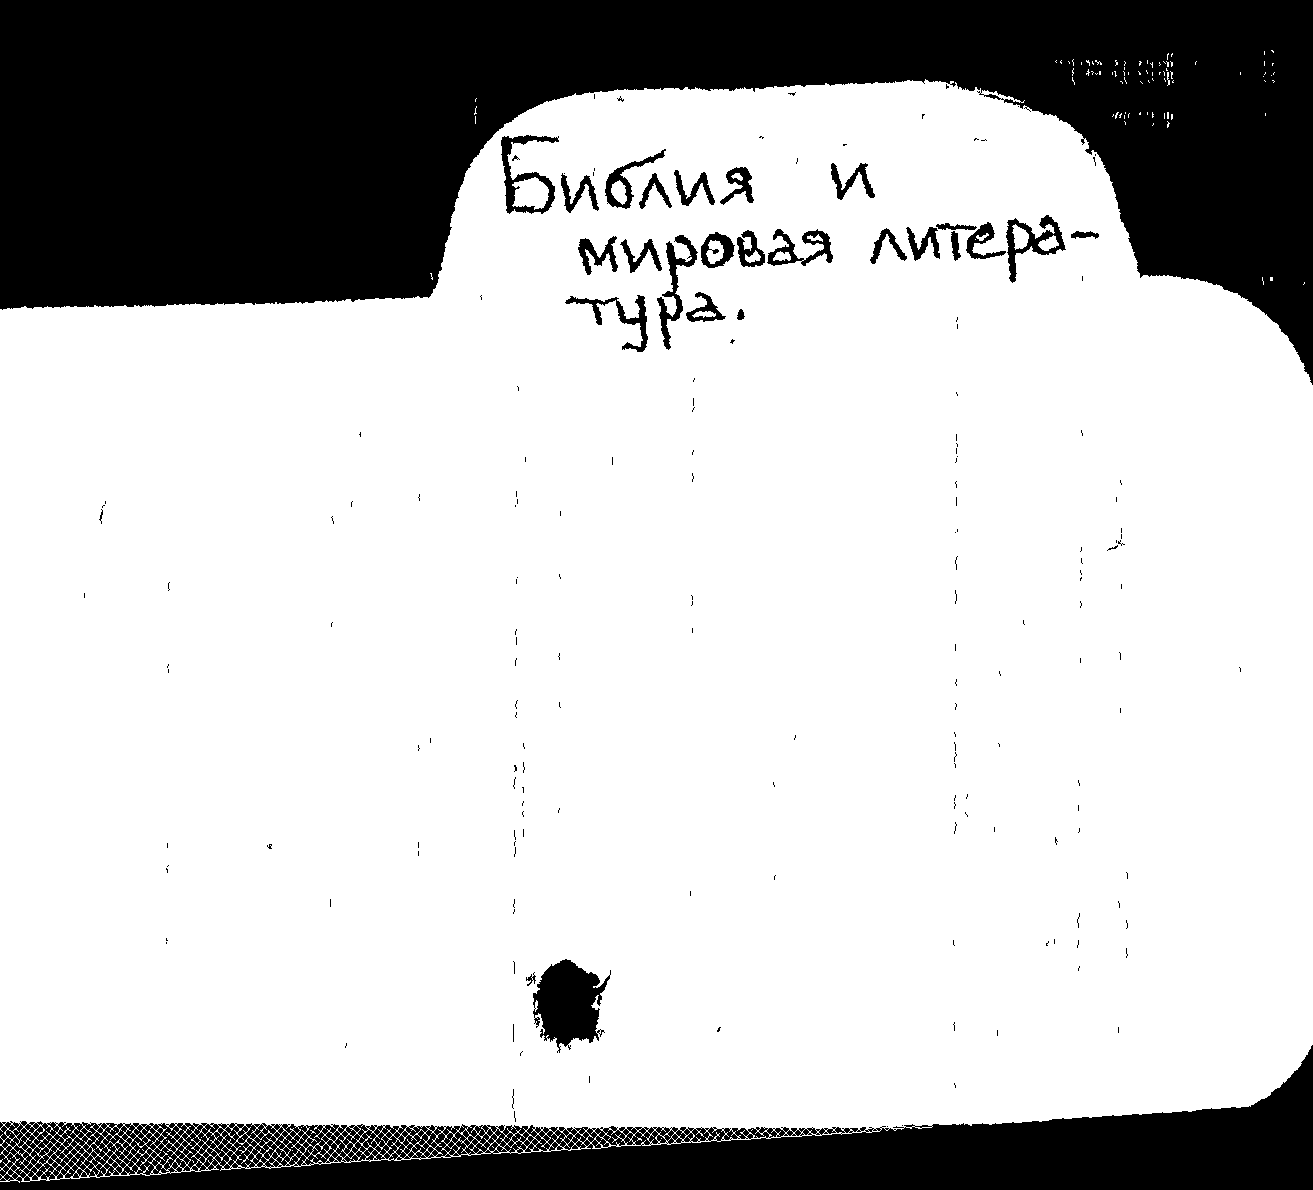 Библия и
мировая литера-
тура.